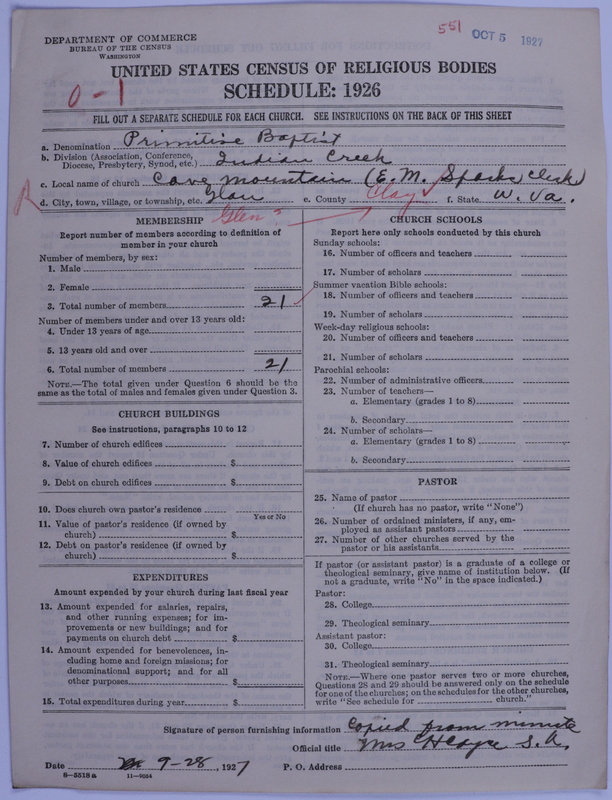 DEPARTMENT OF COMMERCE
BUREAU OF THE CENSUS
WASHINGTON
551 OCT 5 1927
UNITED STATES CENSUS OF RELIGIOUS BODIES
0-1
SCHEDULE: 1926
FILL OUT A SEPARATE SCHEDULE FOR EACH CHURCH. SEE INSTRUCTIONS ON THE BACK OF THIS SHEET
a. Denomination Primitive Baptist
b. Division (Association, Conference, Diocese, Presbytery, Synod, etc.) Indian Creek
c. Local name of church Cave Mountain (E. M. Sparks Clerk)
R d. City, town, village, or township, etc. Glau e. County Clay f. State W. Va.
Glen ?
MEMBERSHIP
Report number of members according to definition of
member in your church
Number of members, by sex:
1. Male
2. Female
3. Total number of members 21
Number of members under and over 13 years old:
4. Under 13 years of age
5. 13 years old and over
6. Total number of members 21
NOTE.—The total given under Question 6 should be the
same as the total of males and females given under Question 3.
CHURCH BUILDINGS
See instructions, paragraphs 10 to 12
7. Number of church edifices
8. Value of church edifices $
9. Debt on church edifices $
10. Does church own pastor's residence
Yes or No
11. Value of pastor's residence (if owned by
church) $
12. Debt on pastor's residence (if owned by
church) $
EXPENDITURES
Amount expended by your church during last fiscal year
13. Amount expended for salaries, repairs,
and other running expenses; for im-
provements or new buildings; and for
payments on church debt $
14. Amount expended for benevolences, in-
cluding home and foreign missions; for
denominational support; and for all
other purposes $
15. Total expenditures during year $
CHURCH SCHOOLS
Report here only schools conducted by this church
Sunday schools:
16. Number of officers and teachers
17. Number of scholars
Summer vacation Bible schools:
18. Number of officers and teachers
19. Number of scholars
Week-day religious schools:
20. Number of officers and teachers
21. Number of scholars
Parochial schools:
22. Number of administrative officers
23. Number of teachers—
a. Elementary (grades 1 to 8)
b. Secondary
24. Number of scholars—
a. Elementary (grades 1 to 8)
b. Secondary
PASTOR
25. Name of pastor
(If church has no pastor, write "None")
26. Number of ordained ministers, if any, em-
ployed as assistant pastors
27. Number of other churches served by the
pastor or his assistants
If pastor (or assistant pastor) is a graduate of a college or
theological seminary, give name of institution below. (If
not a graduate, write "No" in the space indicated.)
Pastor:
28. College
29. Theological seminary
Assistant pastor:
30. College
31. Theological seminary
NOTE.—Where one pastor serves two or more churches,
Questions 28 and 29 should be answered only on the schedule
for one of the churches; on the schedules for the other churches,
write "See schedule for church."
Signature of person furnishing information Copied from minute
Official title Mrs S. A.
Date 9-28, 1927 P. O. Address
8-5518a 11-9034